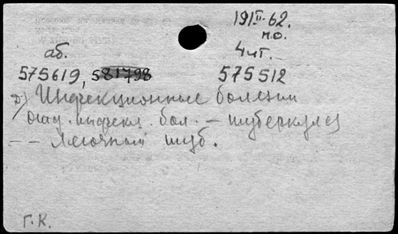 19 1/II-62.
н.о.
аб. 4 чт.
575619, 581798 575512
б) Инфекционные болезни
инфекц. бол. - туберкулез
- - Легочный туб.
Г.К.